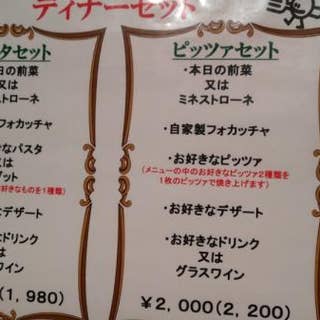 ディナーセット
タセット
日の前菜
又は
ストローネ
フォカッチャ
なパスタ
又は
ット
好きなものを1種類)
なデザート
なドリンク
又は
ワイン
(1, 980)
ピッツァセット
・本日の前菜
又は
ミネストローネ
・自家製フォカッチャ
・お好きなピッツァ
(メニューの中のお好きなピッツァ2種類を
1枚のピッツァで焼き上げます)
・お好きなデザート
・お好きなドリンク
又は
グラスワイン
¥2, 000(2, 200)